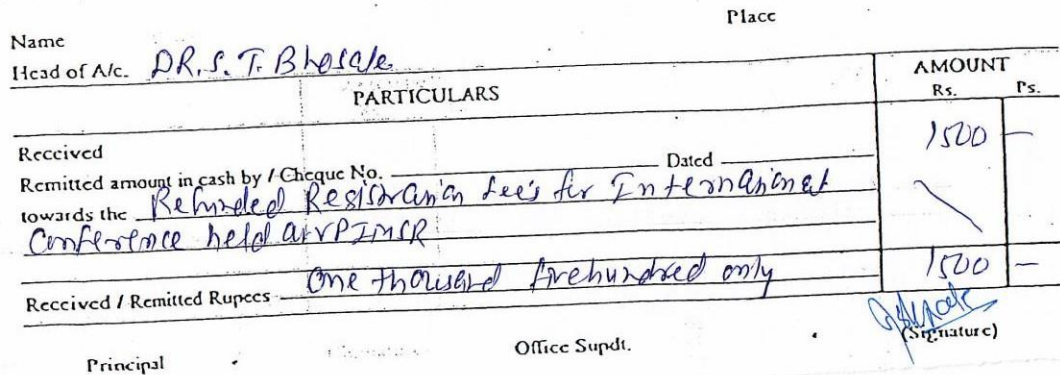 Place
Name
Head of A/c. DR. S. T. Bhosale
PARTICULARS
AMOUNT
Rs. Ps.
Received
1500 —
Remitted amount in cash by / Cheque No. Dated
towards the Refunded Registration fees for International
Conference held at VPIMSR
Received / Remitted Rupees One thousand five hundred only
1500 —
(Signature)
Office Supdt.
Principal